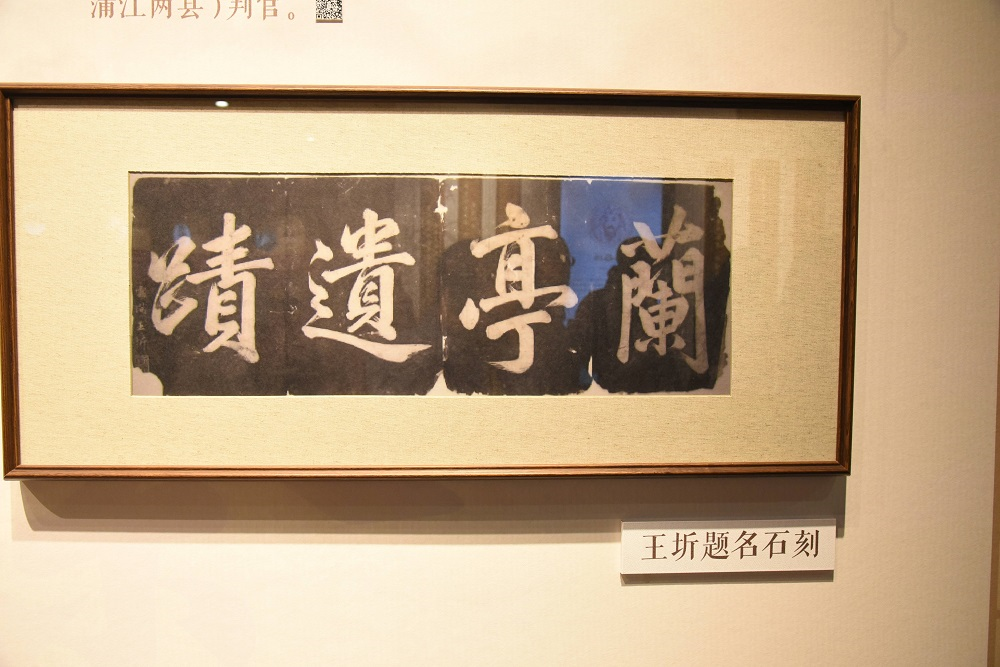 蒲江两县）判官。
蘭亭遺蹟
王圻题名石刻